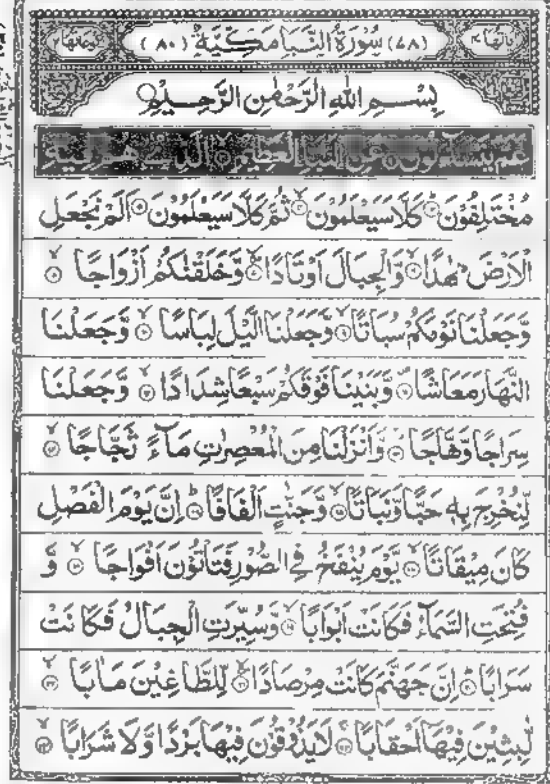 اٰيَاتُهَا ۴۰ (۷۸) سُوْرَةُ النَّبَاِ مَكِّيَّةٌ (۸۰) رُكُوْعَاتُهَا ۲
بِسْمِ اللّٰهِ الرَّحْمٰنِ الرَّحِيْمِ
عَمَّ يَتَسَآءَلُوْنَ ۱ عَنِ النَّبَاِ الْعَظِيْمِ ۲ الَّذِيْ هُمْ فِيْهِ
مُخْتَلِفُوْنَ ۳ كَلَّا سَيَعْلَمُوْنَ ۴ ثُمَّ كَلَّا سَيَعْلَمُوْنَ ۵ اَلَمْ نَجْعَلِ
الْاَرْضَ مِهٰدًا ۶ وَّالْجِبَالَ اَوْتَادًا ۷ وَّخَلَقْنٰكُمْ اَزْوَاجًا ۸
وَّجَعَلْنَا نَوْمَكُمْ سُبَاتًا ۹ وَّجَعَلْنَا الَّيْلَ لِبَاسًا ۱۰ وَّجَعَلْنَا
النَّهَارَ مَعَاشًا ۱۱ وَّبَنَيْنَا فَوْقَكُمْ سَبْعًا شِدَادًا ۱۲ وَّجَعَلْنَا
سِرَاجًا وَّهَّاجًا ۱۳ وَّاَنْزَلْنَا مِنَ الْمُعْصِرٰتِ مَآءً ثَجَّاجًا ۱۴
لِّنُخْرِجَ بِهٖ حَبًّا وَّنَبَاتًا ۱۵ وَّجَنّٰتٍ اَلْفَافًا ۱۶ اِنَّ يَوْمَ الْفَصْلِ
كَانَ مِيْقَاتًا ۱۷ يَّوْمَ يُنْفَخُ فِي الصُّوْرِ فَتَاْتُوْنَ اَفْوَاجًا ۱۸ وَّ
فُتِحَتِ السَّمَآءُ فَكَانَتْ اَبْوَابًا ۱۹ وَّسُيِّرَتِ الْجِبَالُ فَكَانَتْ
سَرَابًا ۲۰ اِنَّ جَهَنَّمَ كَانَتْ مِرْصَادًا ۲۱ لِّلطَّاغِيْنَ مَاٰبًا ۲۲
لّٰبِثِيْنَ فِيْهَآ اَحْقَابًا ۲۳ لَا يَذُوْقُوْنَ فِيْهَا بَرْدًا وَّلَا شَرَابًا ۲۴